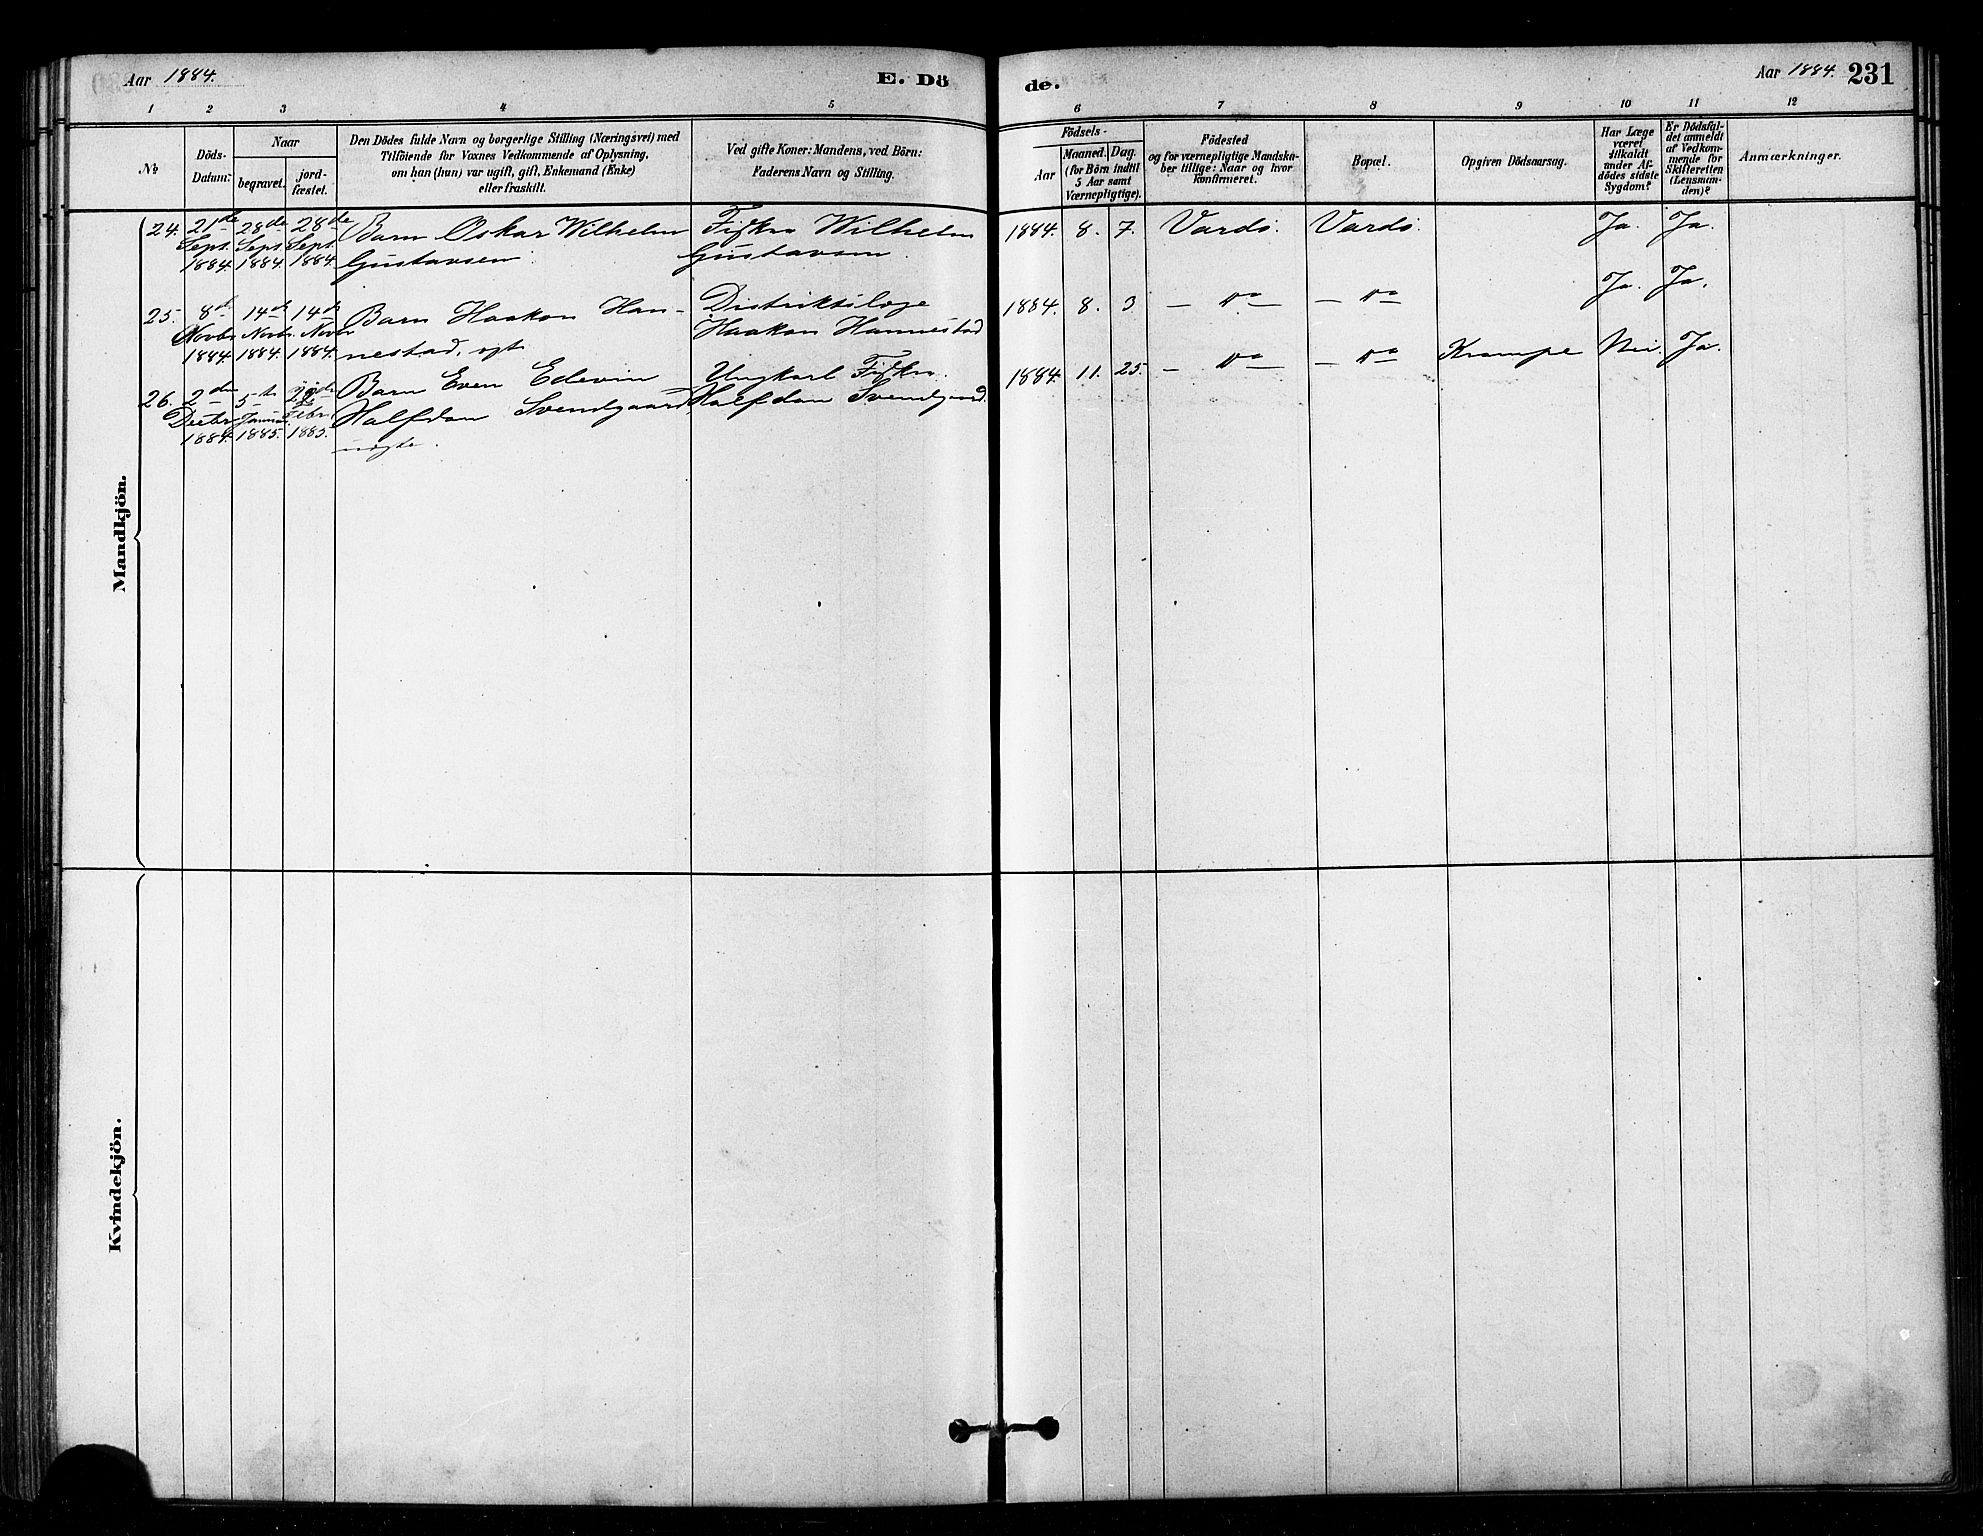 Aar 1884.
E. Dö
de.
Aar 1884. 231
1 2 3 4 5 6 7 8 9 10 11 12
No
Döds-
Datum:
Naar
begravet.
jord-
fæstet.
Den Dödes fulde Navn og borgerlige Stilling (Næringsvei) med
Tilföiende for Voxnes Vedkommende af Oplysning,
om han (hun) var ugift, gift, Enkemand (Enke)
eller fraskilt.
Ved gifte Koner: Mandens, ved Börn:
Faderens Navn og Stilling.
Födsels-
Aar
Maaned. Dag.
(for Börn indtil
5 Aar samt
Værnepligtige).
Födested
og for værnepligtige Mandska-
ber tillige: Naar og hvor
konfirmeret.
Bopæl.
Opgiven Dödsaarsag.
Har Læge
været
tilkaldt
under Af-
dödes sidste
Sygdom?
Er Dödsfal-
det anmeldt
af Vedkom-
mende for
Skifteretten
(Lensman-
den)?
Anmærkninger.
Mandkjön.
24.
21de
Sept.
1884.
28de
Sept.
1884.
28de
Sept.
1884.
Barn Oskar Wilhelm
Gustavsen.
Wilhelm
Gustavsen.
1884. 8. 7. Vardö. Vardö. Ja. Ja.
25.
8de
Novbr
1884.
14de
Novbr.
1884.
14de
Novbr
1884.
Barn Haakon Han-
nestad, ægt
Distriktslæge
Haakon Hannestad
1884. 8. 3 — Do — — Do — Ja. Ja.
26.
2den
Decbr
1884.
5te
Januar
1885.
Febr.
1885.
Barn Even Edevin
Halfdan Svendgaard
uægte.
Ungkarl
Halfdan Svendgaard.
1884. 11. 25. — Do — — Do — Krampe Nei. Ja.
Kvindekjön.